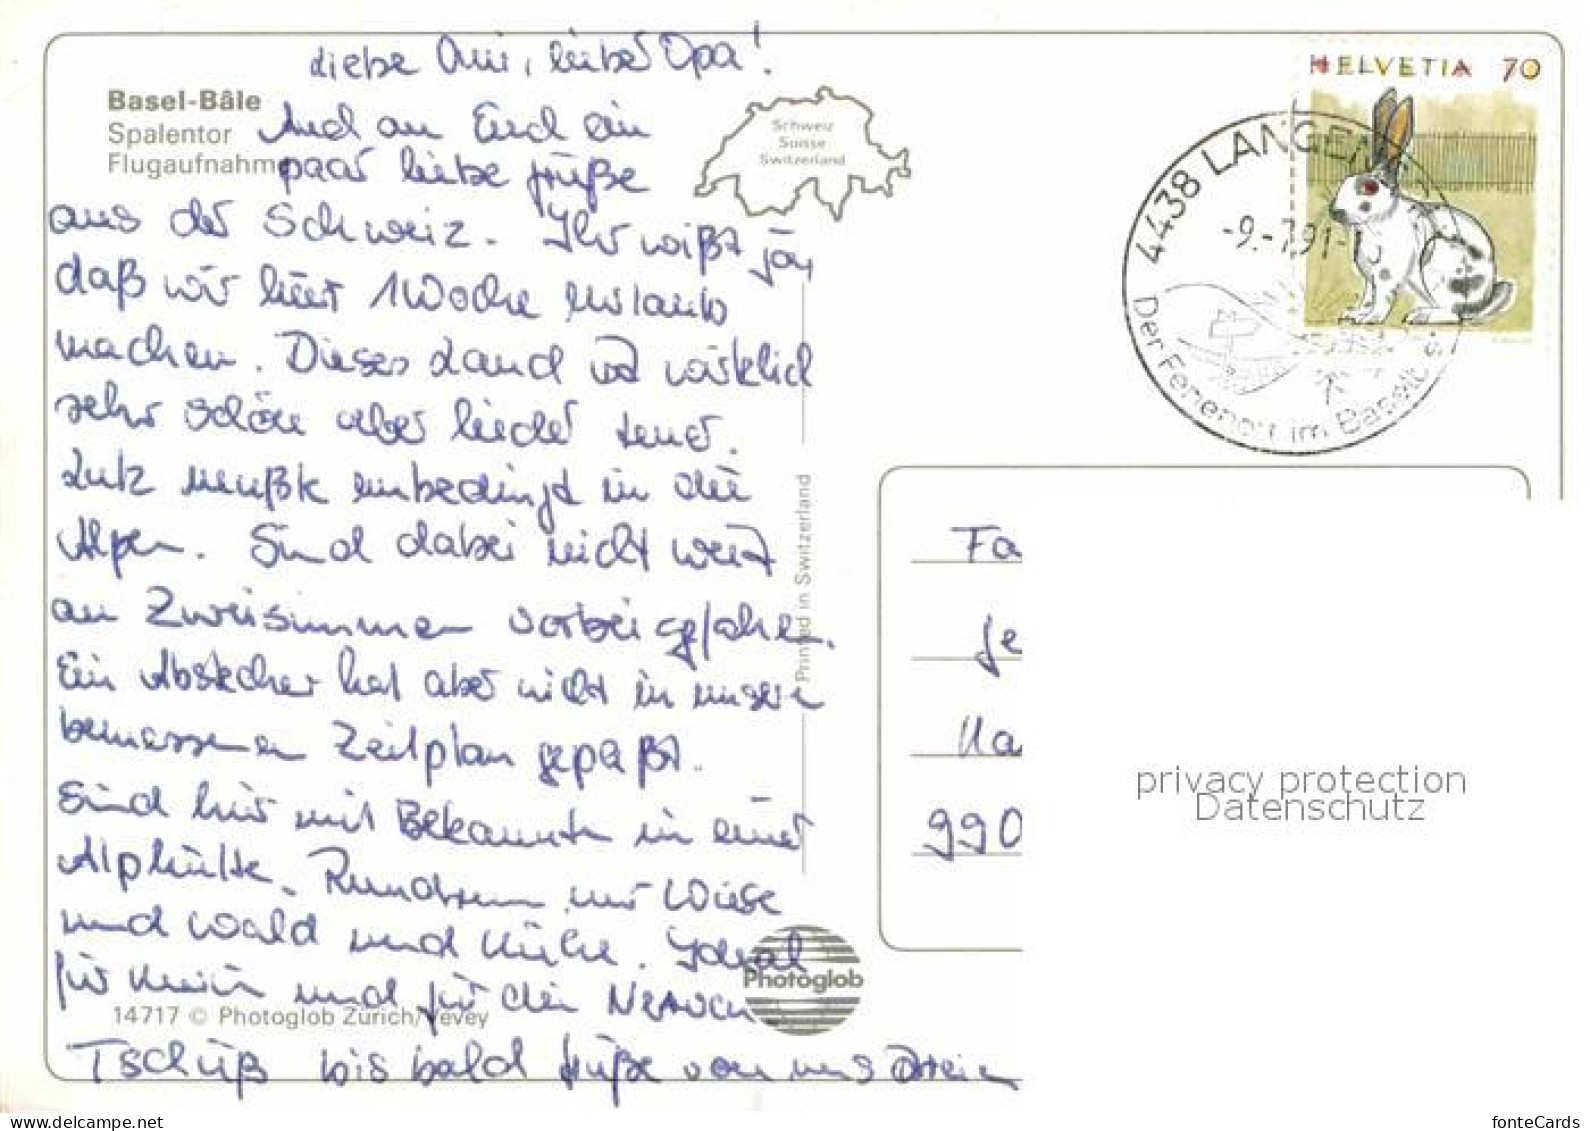 Liebe Omi, lieber Opa!
Basel-Bâle
Spalentor
Flugaufnahme
Auch an Euch ein
paar liebe Grüße
aus der Schweiz. Ihr wißt ja,
daß wir hier 1 Woche Urlaub
machen. Dieses Land ist wirklich
sehr schön aber leider teuer.
Lutz mußte unbedingt in die
Alpen. Sind dabei nicht weit
an Zweisimmen vorbei gefahren.
Ein Abstecher hat aber nicht in unseren
bemessenen Zeitplan gepaßt.
Sind hier mit Bekannten in einer
Alphütte. Rundrum nur Wiese
und Wald und Kühe. Ideal
für und für die Nerven
Tschüß bis bald Grüße von uns Dreien
14717 © Photoglob Zürich/Vevey
Schweiz
Suisse
Switzerland
Printed in Switzerland
Photoglob
HELVETIA 70
4438 LANGEN
-9.-7.91-
Der Ferienort im Baselb
Fa
Ge
Ha
990
privacy protection
Datenschutz
www.delcampe.net
fonteCards